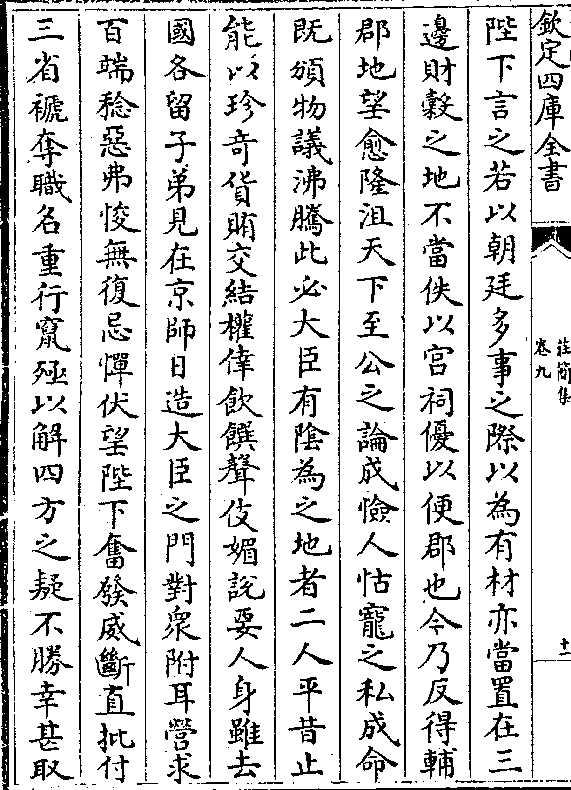 欽定四庫全書
莊簡集
卷九
十一
陛下言之若以朝廷多事之際以為有材亦當置在三
邊財穀之地不當佚以宫祠優以便郡也今乃反得輔
郡地望愈隆沮天下至公之論成憸人怙寵之私成命
既頒物議沸騰此必大臣有陰為之地者二人平昔止
能以珍奇貨賄交結權倖飲饌聲伎媚說要人身雖去
國各留子弟見在京師日造大臣之門對衆附耳營求
百端稔惡弗悛無復忌憚伏望陛下奮發威斷直批付
三省褫奪職名重行竄殛以解四方之疑不勝幸甚取